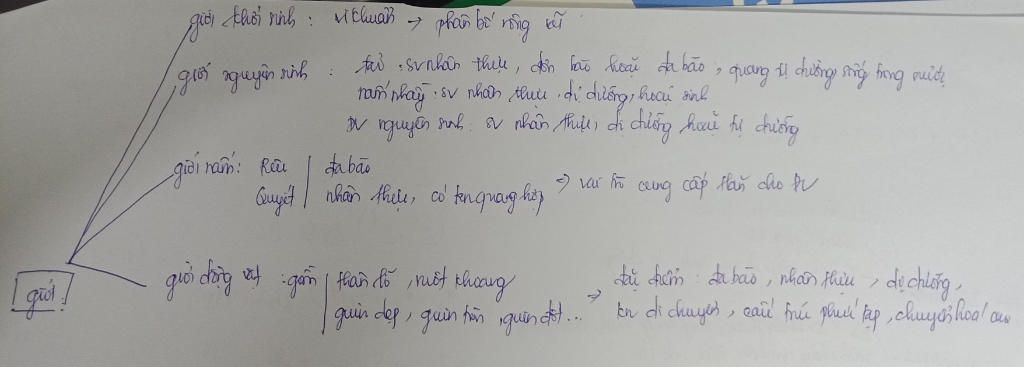 giới khởi sinh : vi khuẩn → phân bố rộng rãi
giới nguyên sinh : tảo : sv nhân thực, đơn bào hoặc đa bào, quang tự dưỡng, sống trong nước
nấm nhầy : sv nhân thực, dị dưỡng, hoại sinh
ĐV nguyên sinh : sv nhân thực, dị dưỡng hoặc tự dưỡng
giới nấm : Rêu | đa bào
Quyết | nhân thực, có kn quang hợp ⇒ vai trò cung cấp thăn cho ĐV
giới động vật : gồm | thân lỗ, ruột khoang
giun dẹp, giun tròn, giun đốt... ⇒ đặc điểm : đa bào, nhân thực, dị dưỡng,
kn di chuyển, cấu trúc phức tạp, chuyên hoá cao
giới